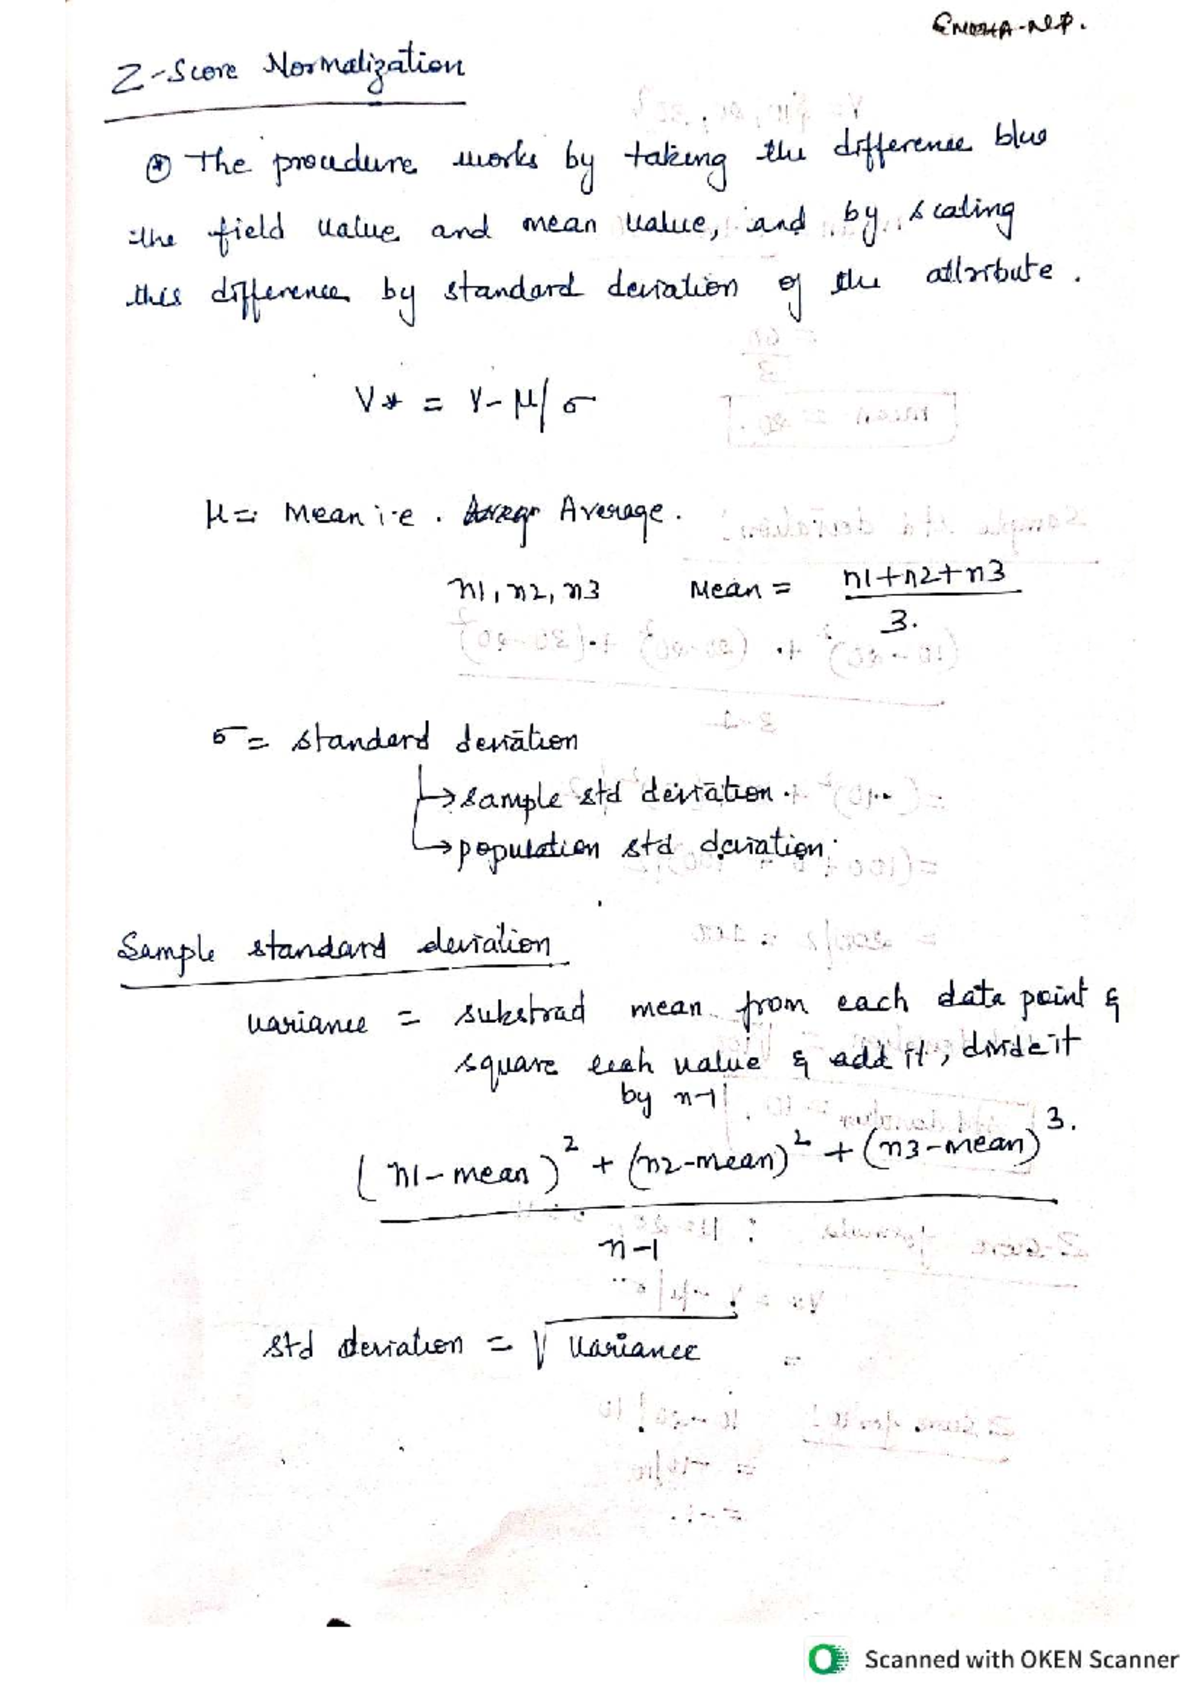 Z-Score Normalization
The procedure works by taking the difference b/w
the field value and mean value, and by scaling
this difference by standard deviation of the attribute.
V* = V-μ/σ
μ = Mean i.e. Average.
n1, n2, n3 Mean = n1+n2+n3
3.
σ = standard deviation
→ sample std deviation.
→ population std deviation.
Sample standard deviation
variance = substrad mean from each data point &
square each value & add it, divide it
by n-1
(n1-mean)² + (n2-mean)² + (n3-mean)³.
n-1
std deviation = √variance
Scanned with OKEN Scanner